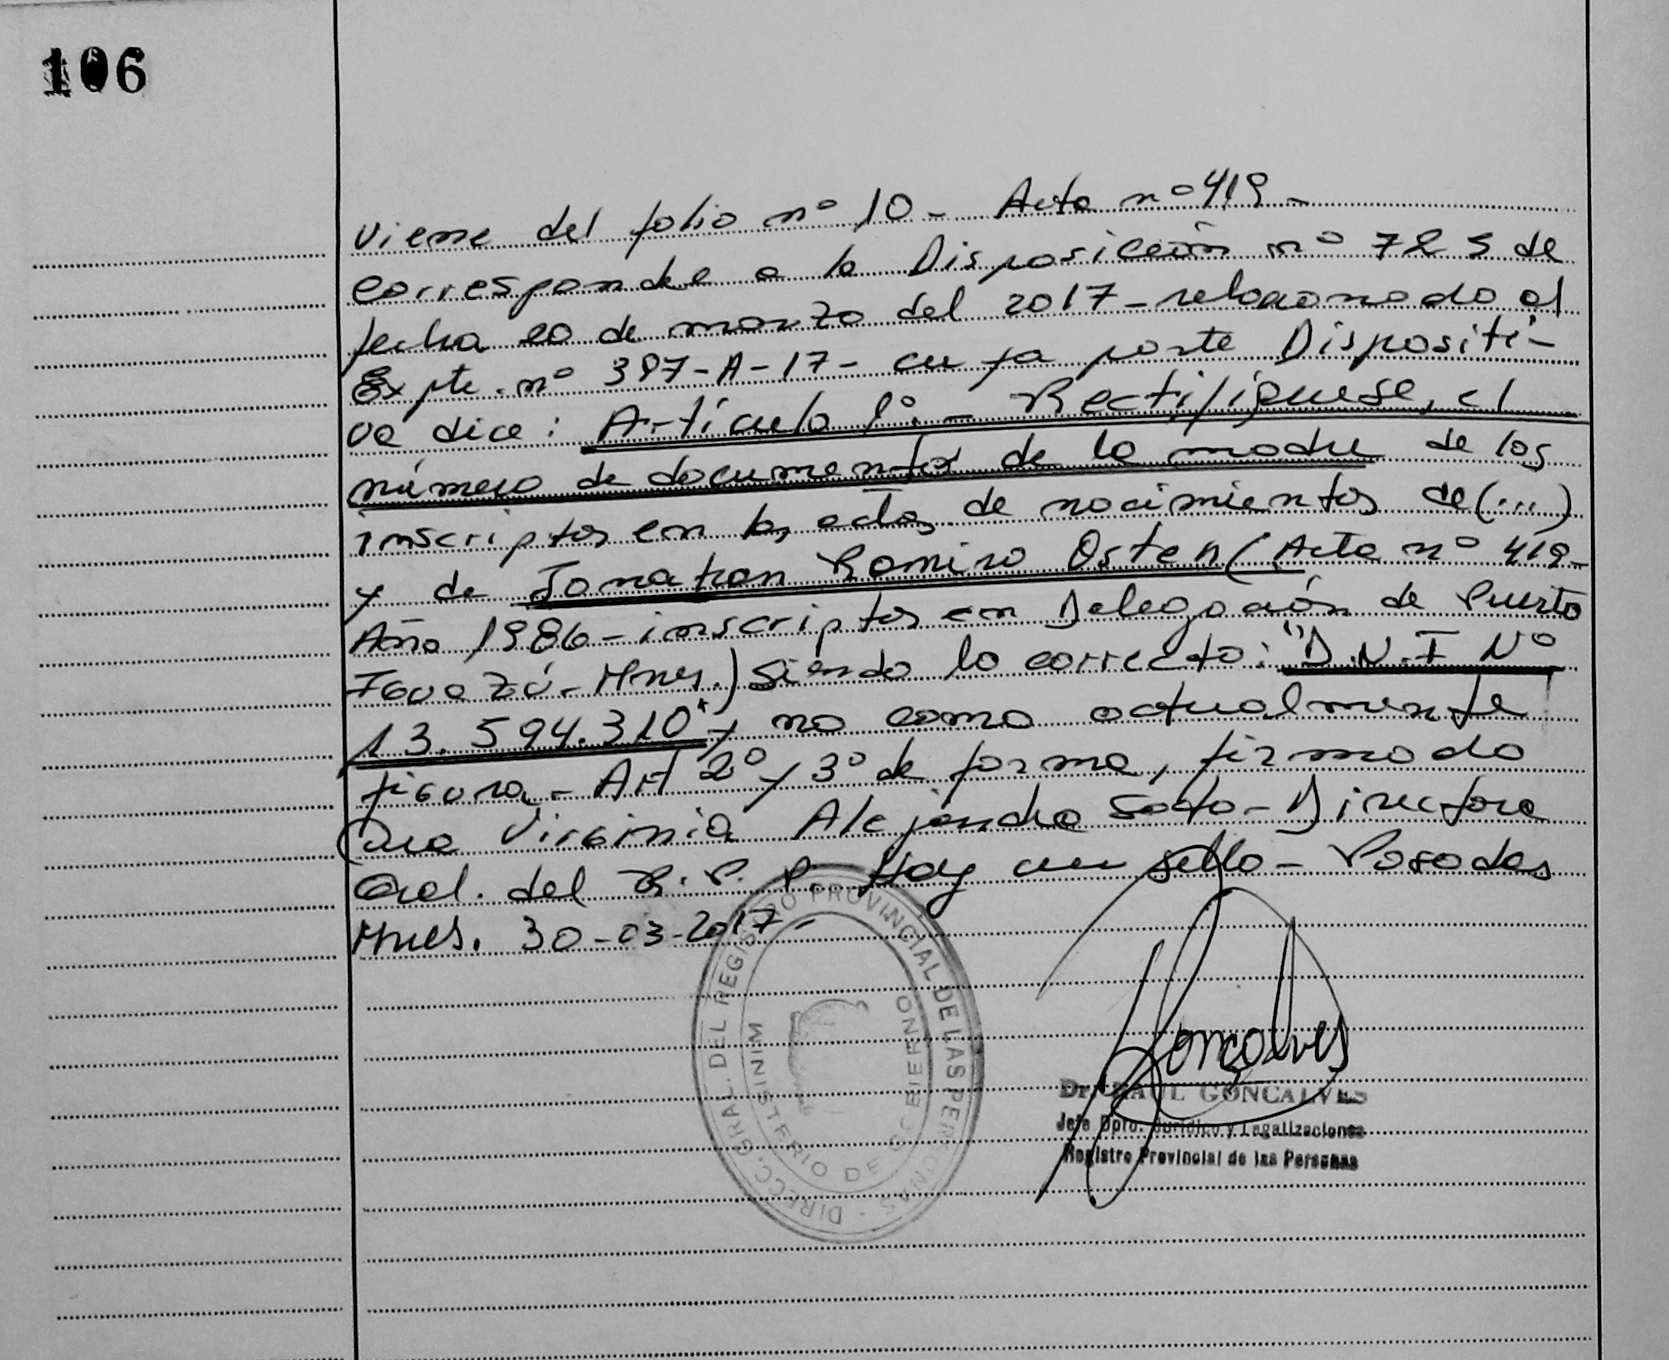 106
Viene del folio nº 10 - Acta nº 419 -
corresponde a la Disposición nº de
fecha 20 de marzo del 2017 - relacionado al
Expte. nº 397-A-17 - cuya parte Dispositi-
va dice: Artículo 1º. - Rectifíquese, el
número de documento de la madre de los
inscriptos en las actas de nacimientos de (...)
y de Jonatan Ramiro Osten (Acta nº 419 -
Año 1986 - inscriptos en Delegación de Puerto
Iguazú - Mnes.) Siendo lo correcto: "D.N.I Nº
13.594.310" y no como actualmente
figura. - Art 2º y 3º de forma, firmado
Virginia Alejandra Soto - Directora
Gral. del R.P.P. Hay un sello - Posadas
Mnes. 30-03-2017 -
DIRECC. GRAL. DEL REGISTRO PROVINCIAL DE LAS PERSONAS -
MINISTERIO DE GOBIERNO
Gonçalves
Dr. RAUL GONCALVES
Jefe Dpto. Jurídico y Legalizaciones
Registro Provincial de las Personas